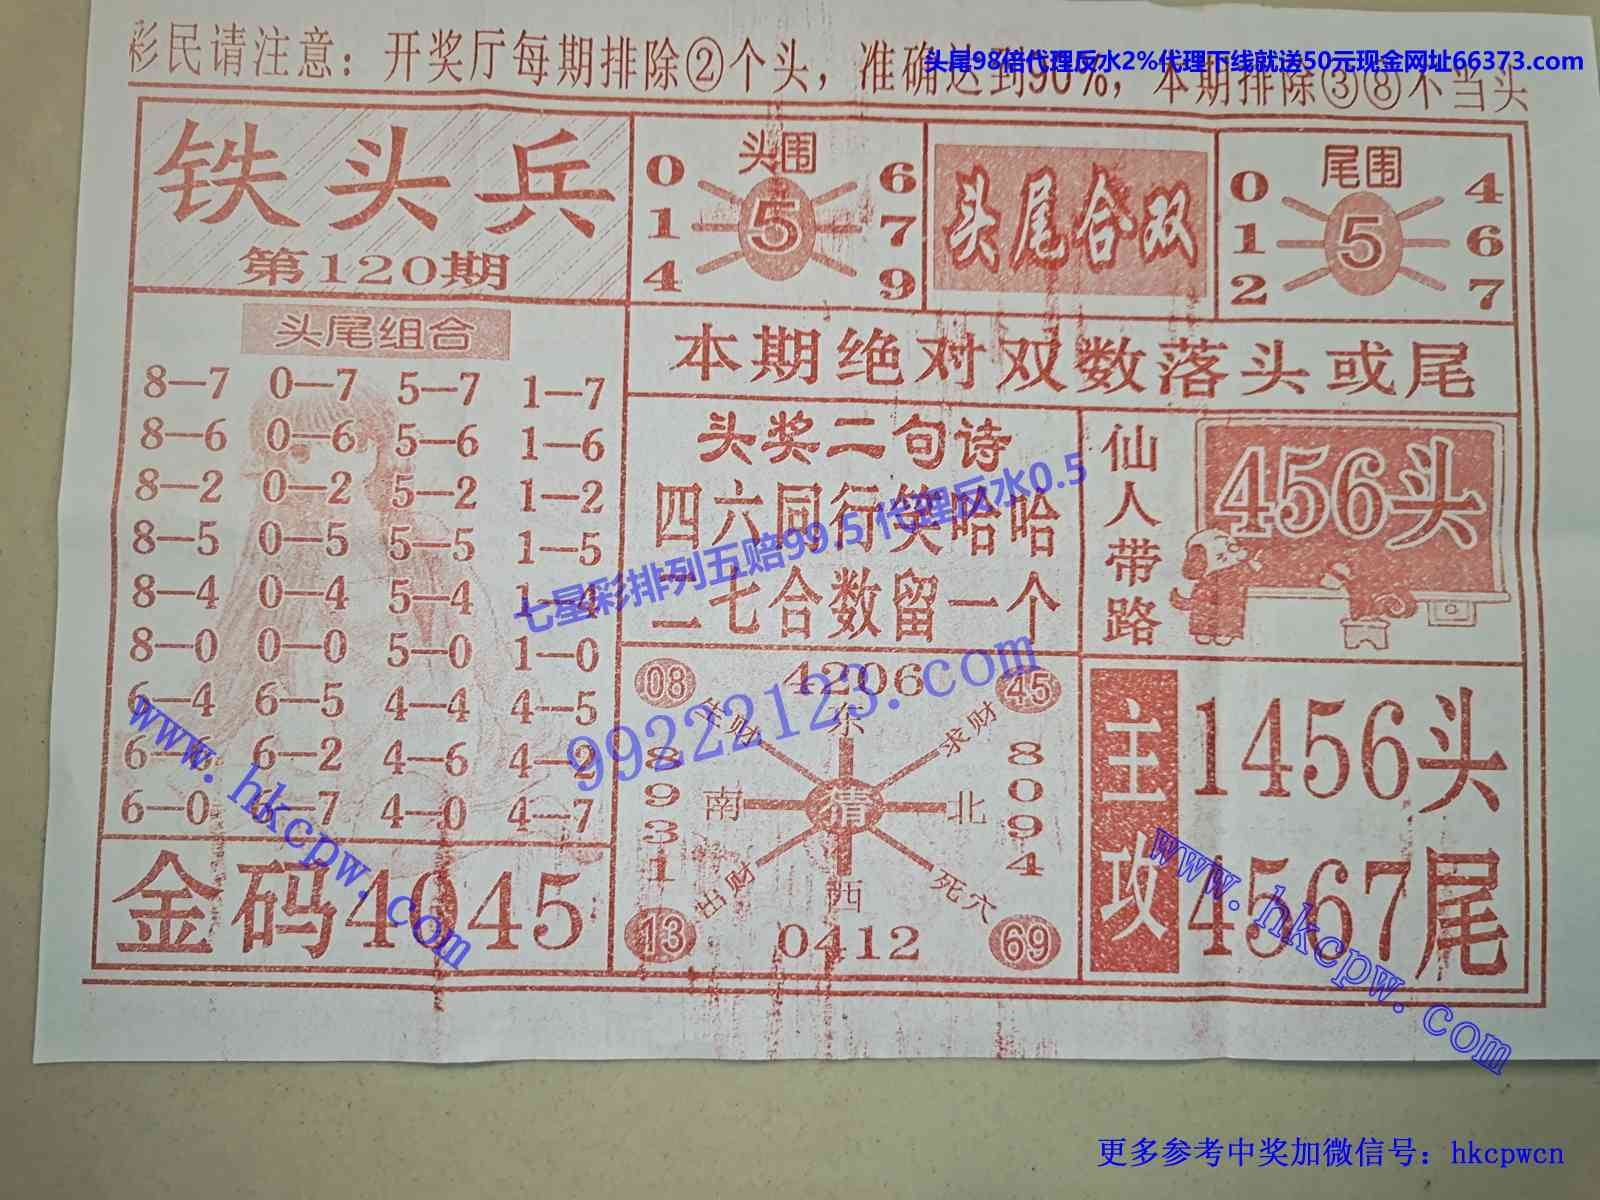 彩民请注意：开奖厅每期排除②个头，准确达到90%，本期排除③⑧不当头
头尾98倍代理反水2%代理下线就送50元现金网址66373.com
铁头兵
第120期
头围
0 6
1 5 7
4 9
头尾合双
尾围
0 4
1 5 6
2 7
头尾组合
8—7 0—7 5—7 1—7
8—6 0—6 5—6 1—6
8—2 0—2 5—2 1—2
8—5 0—5 5—5 1—5
8—4 0—4 5—4 1—4
8—0 0—0 5—0 1—0
6—4 6—5 4—4 4—5
6—6 6—2 4—6 4—2
6—0 6—7 4—0 4—7
金码4045
本期绝对双数落头或尾
头奖二句诗
四六同行笑哈哈
二七合数留一个
仙人带路
456头
08 4206 45
生财 东 求财
8931 南 猜 北 8094
出财 西 死穴
13 0412 69
主攻
1456头
4567尾
七星彩排列五赔99.5代理反水0.5
99222123.com
www.hkcpw.com
www.hkcpw.com
更多参考中奖加微信号：hkcpwcn